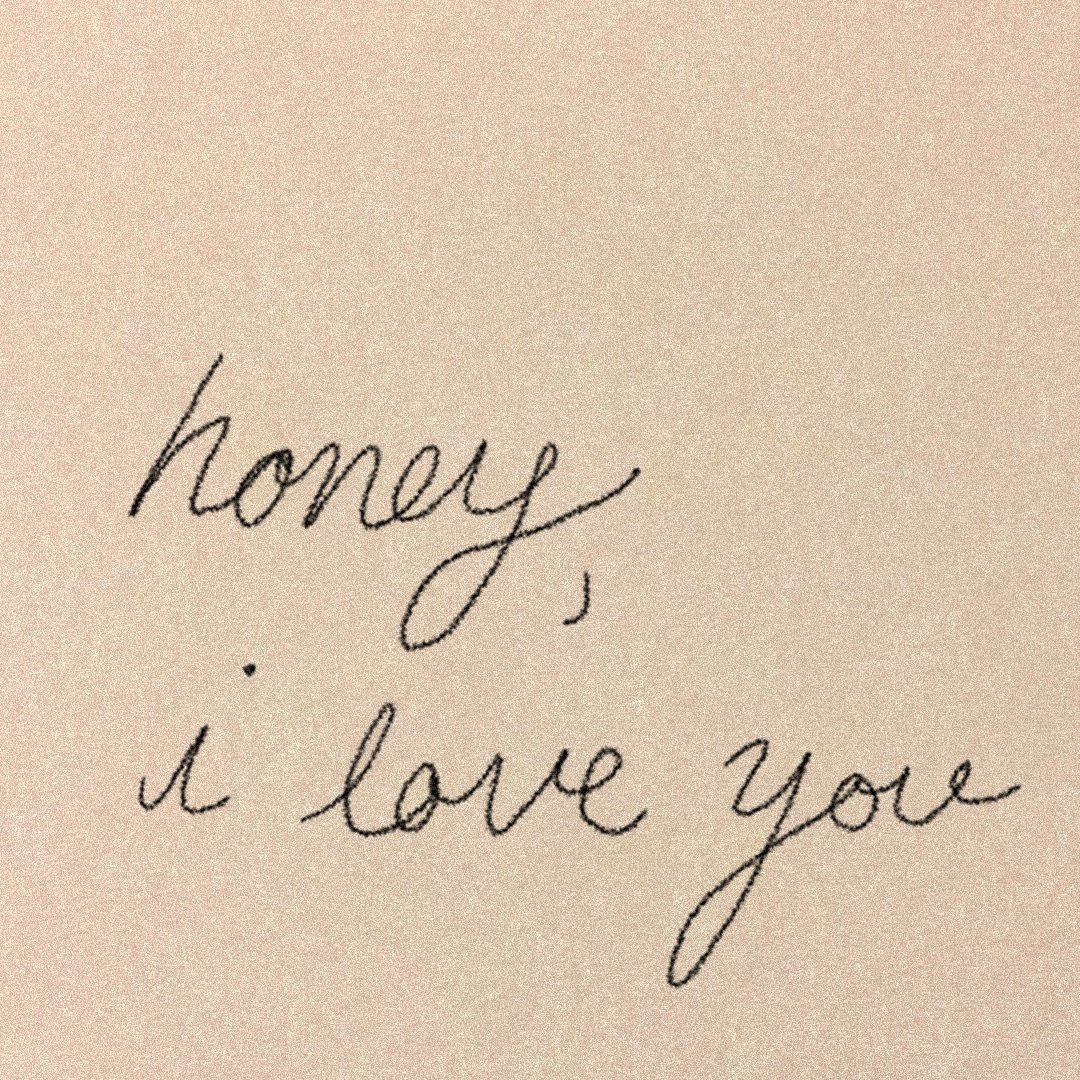 honey,
i love you